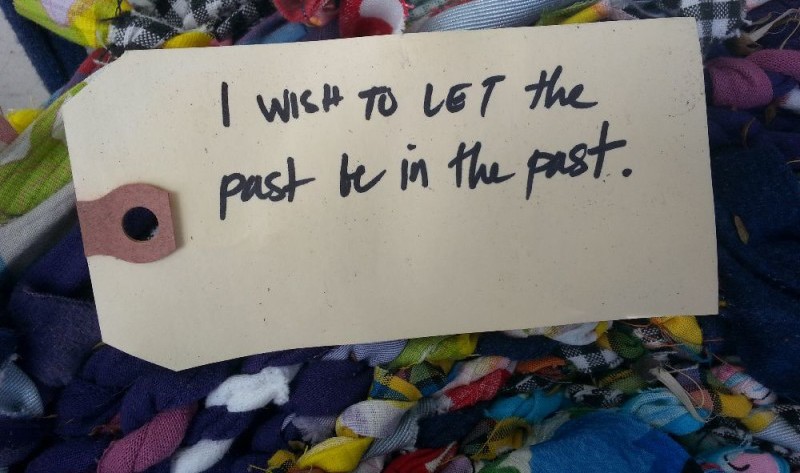 I WISH TO LET the
past be in the past.